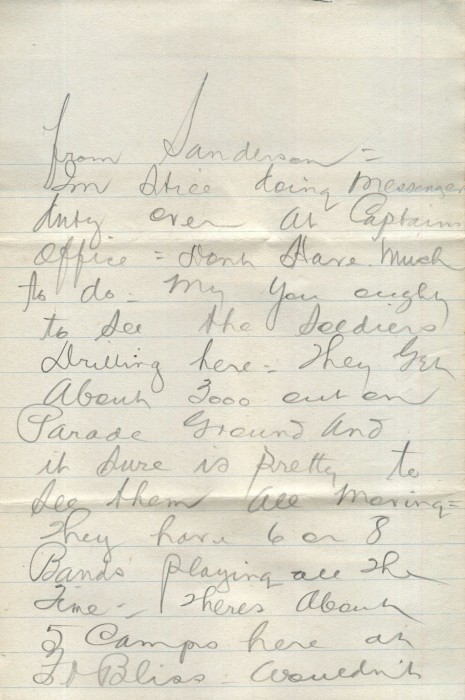 from Sanderson =
Im still doing messenger
duty over at Captains
Office = Dont Have Much
to do - My You ought
to see the Soldiers
Drilling here - They Get
About 3000 out on
Parade Ground And
it sure is pretty to
see them all moving =
They have 6 or 8
Bands playing all the
Time - Theres About
5 Camps here at
Ft Bliss - Wouldn't